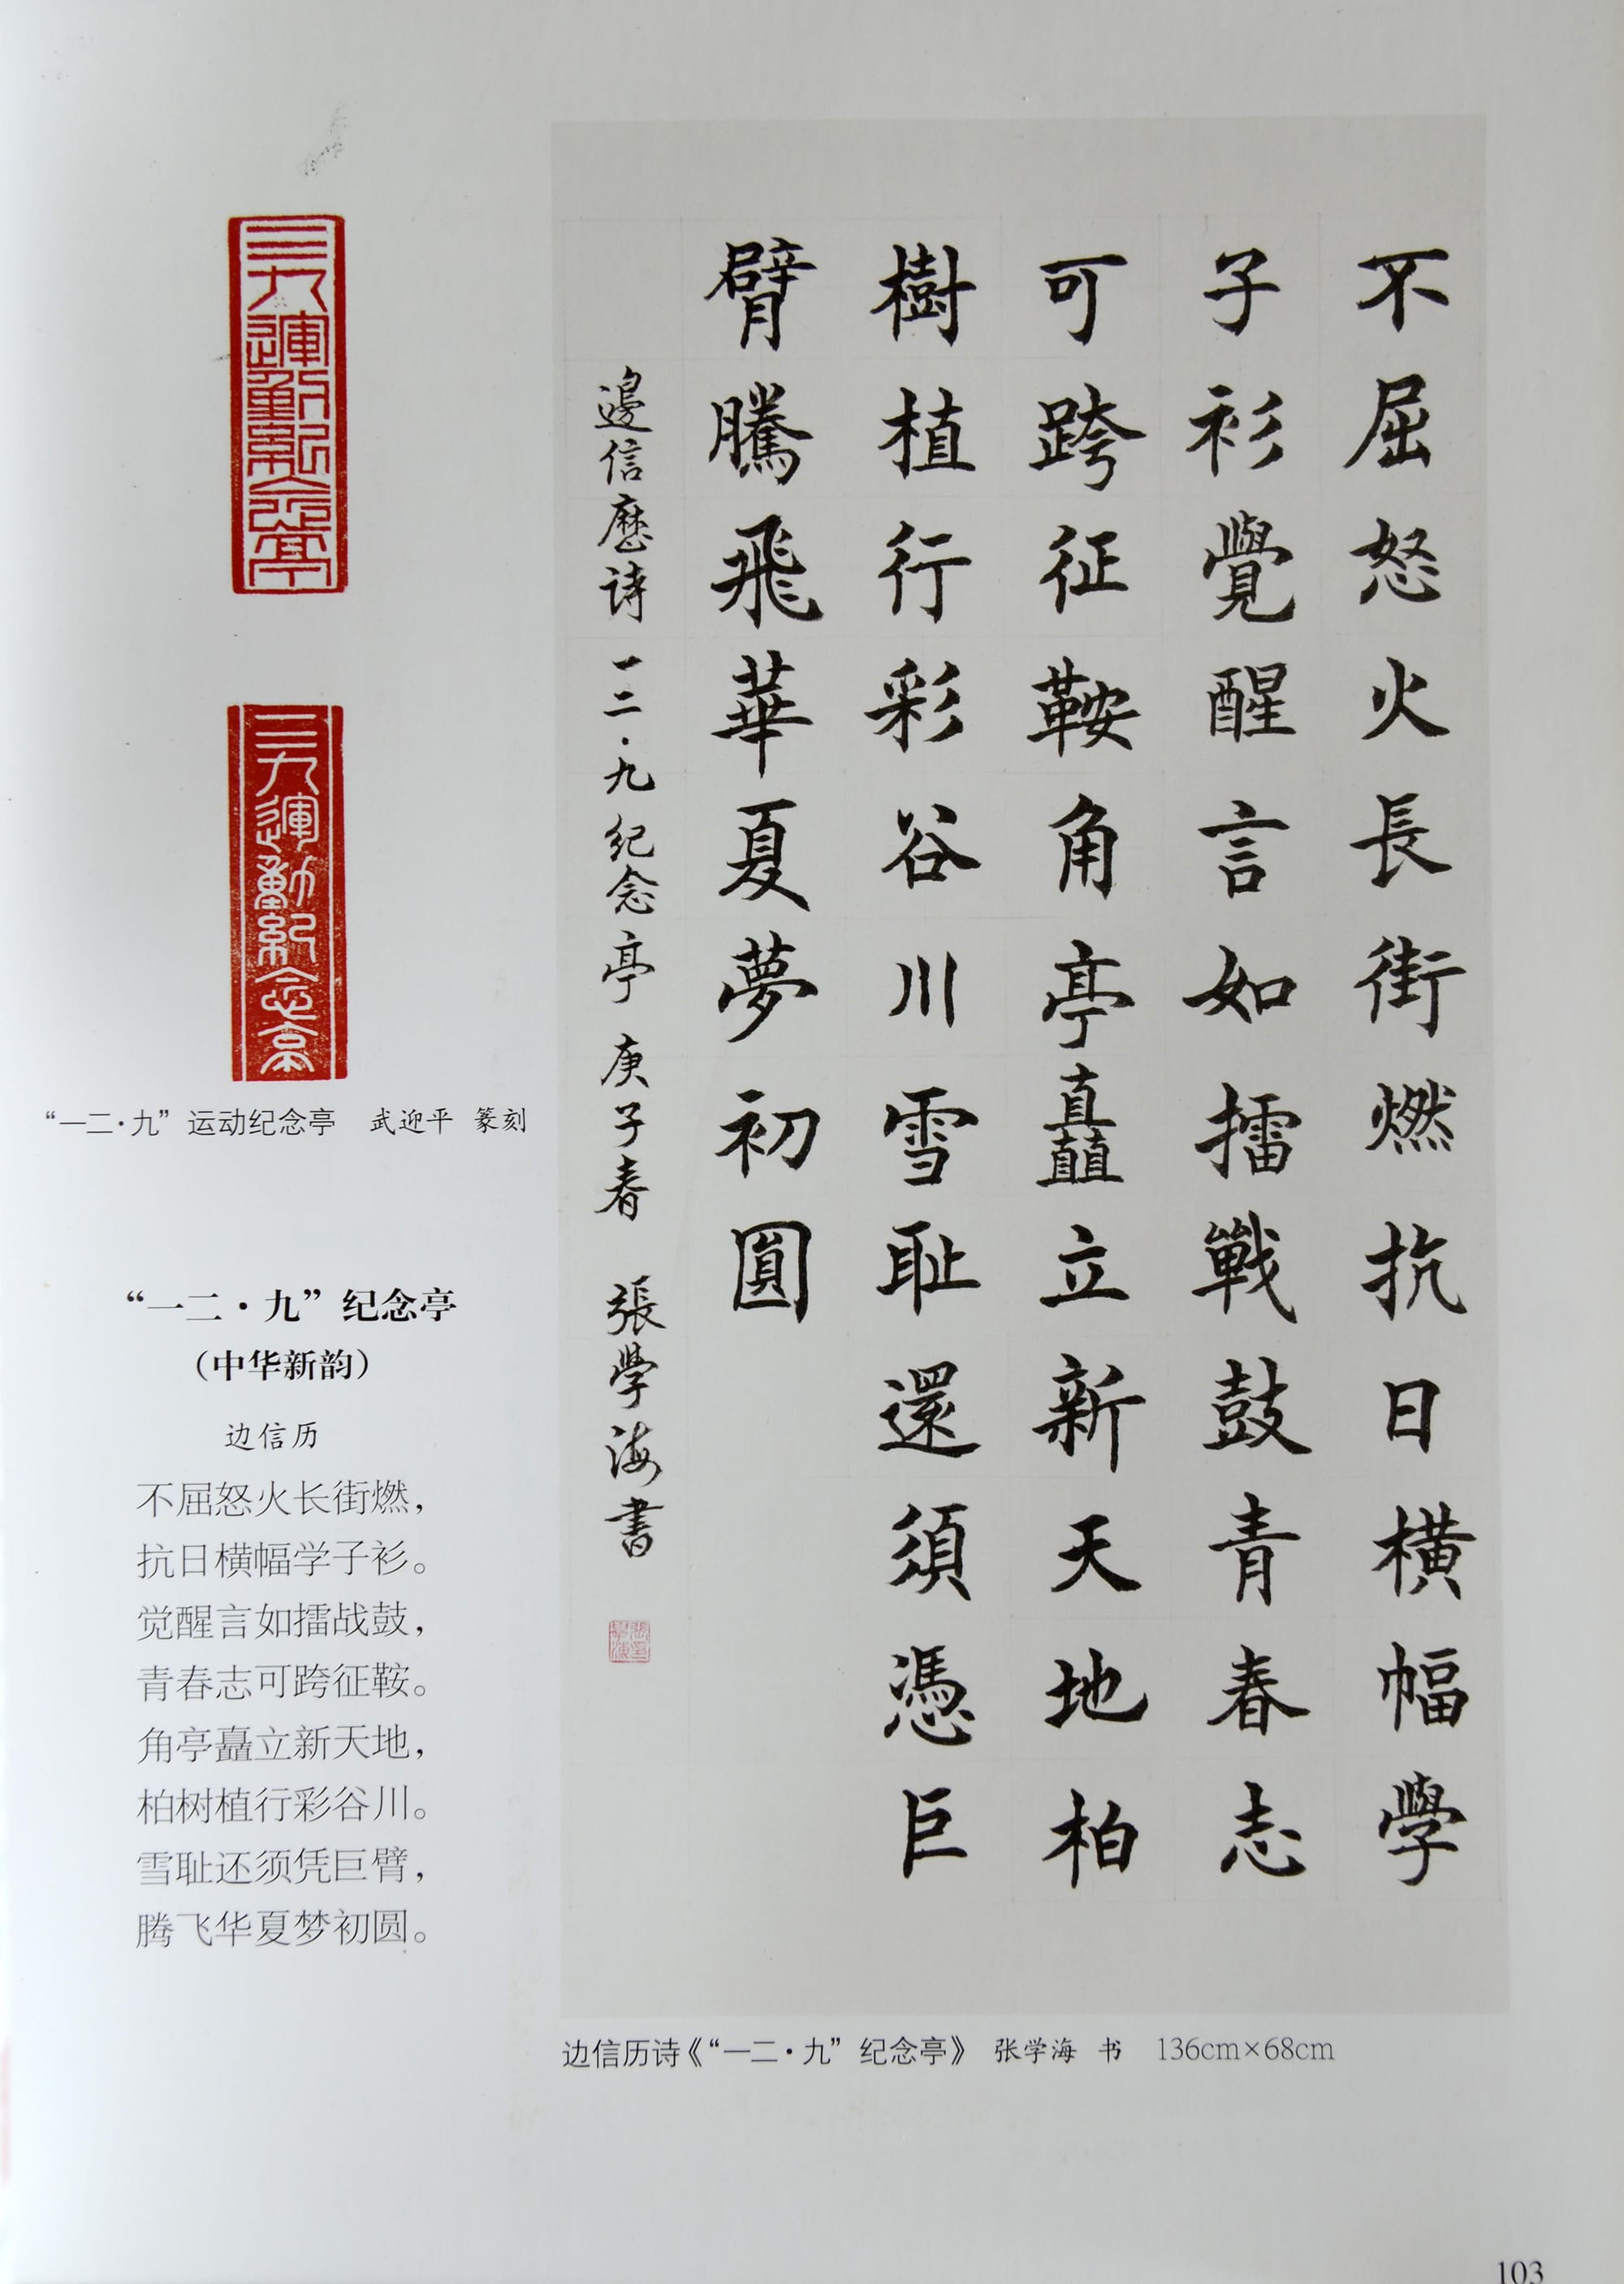 一二九運動紀念亭
一二九運動紀念亭
“一二·九”运动纪念亭 武迎平 篆刻
“一二·九”纪念亭
（中华新韵）
边信历
不屈怒火长街燃，
抗日横幅学子衫。
觉醒言如擂战鼓，
青春志可跨征鞍。
角亭矗立新天地，
柏树植行彩谷川。
雪耻还须凭巨臂，
腾飞华夏梦初圆。
不屈怒火長街燃抗日橫幅學
子衫覺醒言如擂戰鼓青春志
可跨征鞍角亭矗立新天地柏
樹植行彩谷川雪耻還須憑巨
臂騰飛華夏夢初圓
邊信歷诗 一二·九纪念亭 庚子春 張學海書
边信历诗《“一二·九”纪念亭》 张学海 书 136cm×68cm
103